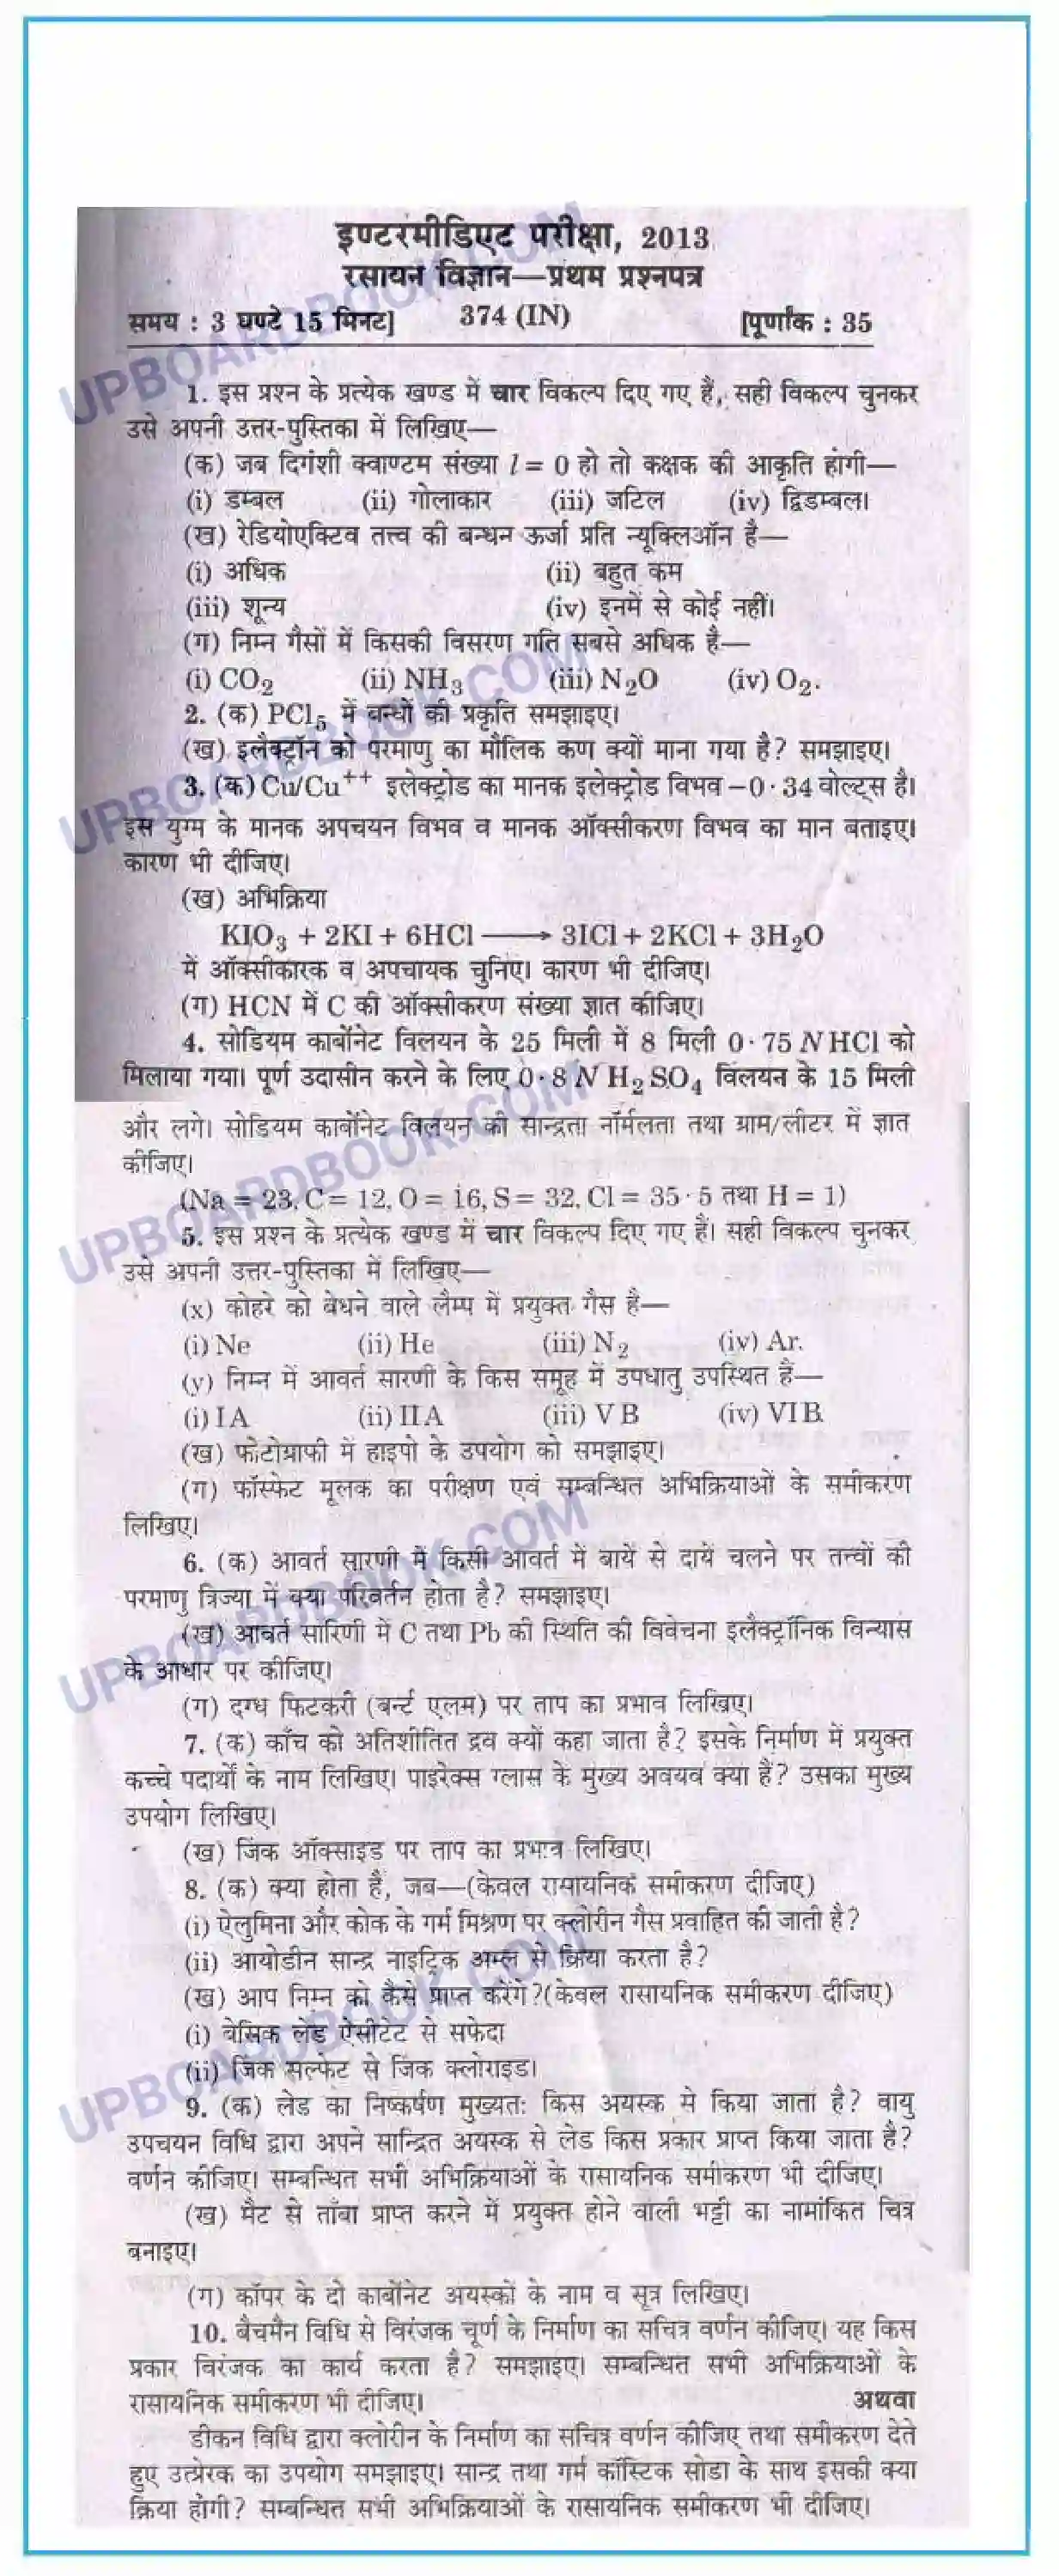 इण्टरमीडिएट परीक्षा, 2013
रसायन विज्ञान—प्रथम प्रश्नपत्र
समय : 3 घण्टे 15 मिनट] 374 (IN) [पूर्णांक : 35
1. इस प्रश्न के प्रत्येक खण्ड में चार विकल्प दिए गए हैं, सही विकल्प चुनकर
उसे अपनी उत्तर-पुस्तिका में लिखिए—
(क) जब दिगंशी क्वाण्टम संख्या l = 0 हो तो कक्षक की आकृति होगी—
(i) डम्बल (ii) गोलाकार (iii) जटिल (iv) द्विडम्बल।
(ख) रेडियोएक्टिव तत्त्व की बन्धन ऊर्जा प्रति न्यूक्लिऑन है—
(i) अधिक (ii) बहुत कम
(iii) शून्य (iv) इनमें से कोई नहीं।
(ग) निम्न गैसों में किसकी विसरण गति सबसे अधिक है—
(i) CO₂ (ii) NH₃ (iii) N₂O (iv) O₂.
2. (क) PCl₅ में बन्धों की प्रकृति समझाइए।
(ख) इलैक्ट्रॉन को परमाणु का मौलिक कण क्यों माना गया है? समझाइए।
3. (क) Cu/Cu⁺⁺ इलेक्ट्रोड का मानक इलेक्ट्रोड विभव –0·34 वोल्ट्स है।
इस युग्म के मानक अपचयन विभव व मानक ऑक्सीकरण विभव का मान बताइए।
कारण भी दीजिए।
(ख) अभिक्रिया
KIO₃ + 2KI + 6HCl ⟶ 3ICl + 2KCl + 3H₂O
में ऑक्सीकारक व अपचायक चुनिए। कारण भी दीजिए।
(ग) HCN में C की ऑक्सीकरण संख्या ज्ञात कीजिए।
4. सोडियम कार्बोनेट विलयन के 25 मिली में 8 मिली 0·75 N HCl को
मिलाया गया। पूर्ण उदासीन करने के लिए 0·8 N H₂SO₄ विलयन के 15 मिली
और लगे। सोडियम कार्बोनेट विलयन की सान्द्रता नॉर्मलता तथा ग्राम/लीटर में ज्ञात
कीजिए।
(Na = 23, C = 12, O = 16, S = 32, Cl = 35·5 तथा H = 1)
5. इस प्रश्न के प्रत्येक खण्ड में चार विकल्प दिए गए हैं। सही विकल्प चुनकर
उसे अपनी उत्तर-पुस्तिका में लिखिए—
(x) कोहरे को बेधने वाले लैम्प में प्रयुक्त गैस है—
(i) Ne (ii) He (iii) N₂ (iv) Ar.
(y) निम्न में आवर्त सारणी के किस समूह में उपधातु उपस्थित हैं—
(i) I A (ii) II A (iii) V B (iv) VI B
(ख) फोटोग्राफी में हाइपो के उपयोग को समझाइए।
(ग) फॉस्फेट मूलक का परीक्षण एवं सम्बन्धित अभिक्रियाओं के समीकरण
लिखिए।
6. (क) आवर्त सारणी में किसी आवर्त में बायें से दायें चलने पर तत्त्वों की
परमाणु त्रिज्या में क्या परिवर्तन होता है? समझाइए।
(ख) आवर्त सारिणी में C तथा Pb की स्थिति की विवेचना इलैक्ट्रॉनिक विन्यास
के आधार पर कीजिए।
(ग) दग्ध फिटकरी (बर्न्ट एलम) पर ताप का प्रभाव लिखिए।
7. (क) काँच को अतिशीतित द्रव क्यों कहा जाता है? इसके निर्माण में प्रयुक्त
कच्चे पदार्थों के नाम लिखिए। पाइरेक्स ग्लास के मुख्य अवयव क्या हैं? उसका मुख्य
उपयोग लिखिए।
(ख) जिंक ऑक्साइड पर ताप का प्रभाव लिखिए।
8. (क) क्या होता है, जब—(केवल रासायनिक समीकरण दीजिए)
(i) ऐलुमिना और कोक के गर्म मिश्रण पर क्लोरीन गैस प्रवाहित की जाती है?
(ii) आयोडीन सान्द्र नाइट्रिक अम्ल से क्रिया करता है?
(ख) आप निम्न को कैसे प्राप्त करेंगे?(केवल रासायनिक समीकरण दीजिए)
(i) बेसिक लेड ऐसीटेट से सफेदा
(ii) जिंक सल्फेट से जिंक क्लोराइड।
9. (क) लेड का निष्कर्षण मुख्यतः किस अयस्क से किया जाता है? वायु
उपचयन विधि द्वारा अपने सान्द्रित अयस्क से लेड किस प्रकार प्राप्त किया जाता है?
वर्णन कीजिए। सम्बन्धित सभी अभिक्रियाओं के रासायनिक समीकरण भी दीजिए।
(ख) मैट से ताँबा प्राप्त करने में प्रयुक्त होने वाली भट्टी का नामांकित चित्र
बनाइए।
(ग) कॉपर के दो कार्बोनेट अयस्कों के नाम व सूत्र लिखिए।
10. बैचमैन विधि से विरंजक चूर्ण के निर्माण का सचित्र वर्णन कीजिए। यह किस
प्रकार विरंजक का कार्य करता है? समझाइए। सम्बन्धित सभी अभिक्रियाओं के
रासायनिक समीकरण भी दीजिए। अथवा
डीकन विधि द्वारा क्लोरीन के निर्माण का सचित्र वर्णन कीजिए तथा समीकरण देते
हुए उत्प्रेरक का उपयोग समझाइए। सान्द्र तथा गर्म कॉस्टिक सोडा के साथ इसकी क्या
क्रिया होगी? सम्बन्धित सभी अभिक्रियाओं के रासायनिक समीकरण भी दीजिए।
UPBOARDBOOK.COM
UPBOARDBOOK.COM
UPBOARDBOOK.COM
UPBOARDBOOK.COM
UPBOARDBOOK.COM